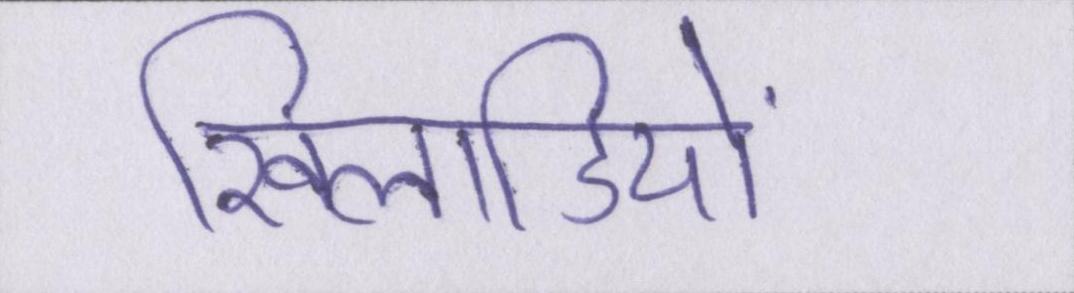 खिलाडियों